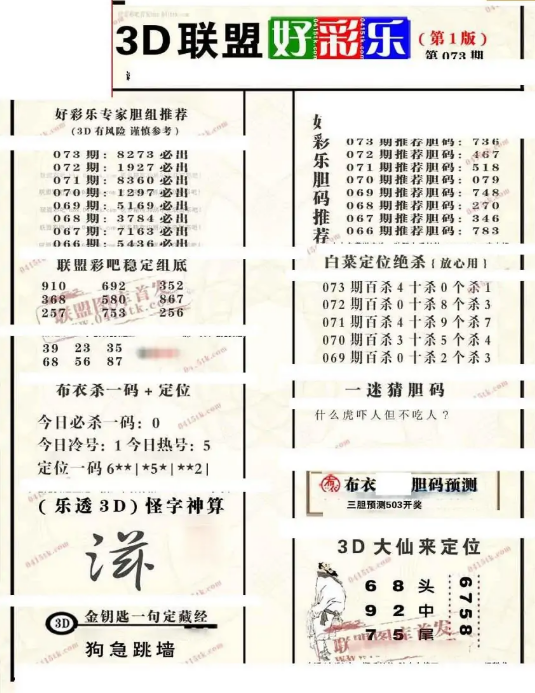 3D联盟 好彩乐 (第1版)
第073期
好彩乐专家胆组推荐
(3D有风险 谨慎参考)
073期: 8273必出
072期: 1927必出
071期: 8360必出
070期: 1297必出
069期: 5169必出
068期: 3784必出
067期: 7163必出
066期: 5436必出
联盟彩吧稳定组底
910 692 352
368 580 867
257 753 256
39 23 35
68 56 87
布衣杀一码+定位
今日必杀一码: 0
今日冷号: 1 今日热号: 5
定位一码6**|*5*|**2|
(乐透3D)怪字神算
3D 金钥匙一句定藏经
狗急跳墙
好彩乐胆码推荐
073期推荐胆码: 736
072期推荐胆码: 467
071期推荐胆码: 518
070期推荐胆码: 079
069期推荐胆码: 748
068期推荐胆码: 270
067期推荐胆码: 346
066期推荐胆码: 783
白菜定位绝杀{放心用}
073期百杀4十杀0个杀1
072期百杀0十杀8个杀3
071期百杀4十杀9个杀7
070期百杀3十杀5个杀4
069期百杀0十杀2个杀3
一迷猜胆码
什么虎吓人但不吃人?
布衣 胆码预测
三胆预测503开奖
3D大仙来定位
6 8 头
9 2 中
7 5 尾
6758
联盟图库首发
0415tk.com